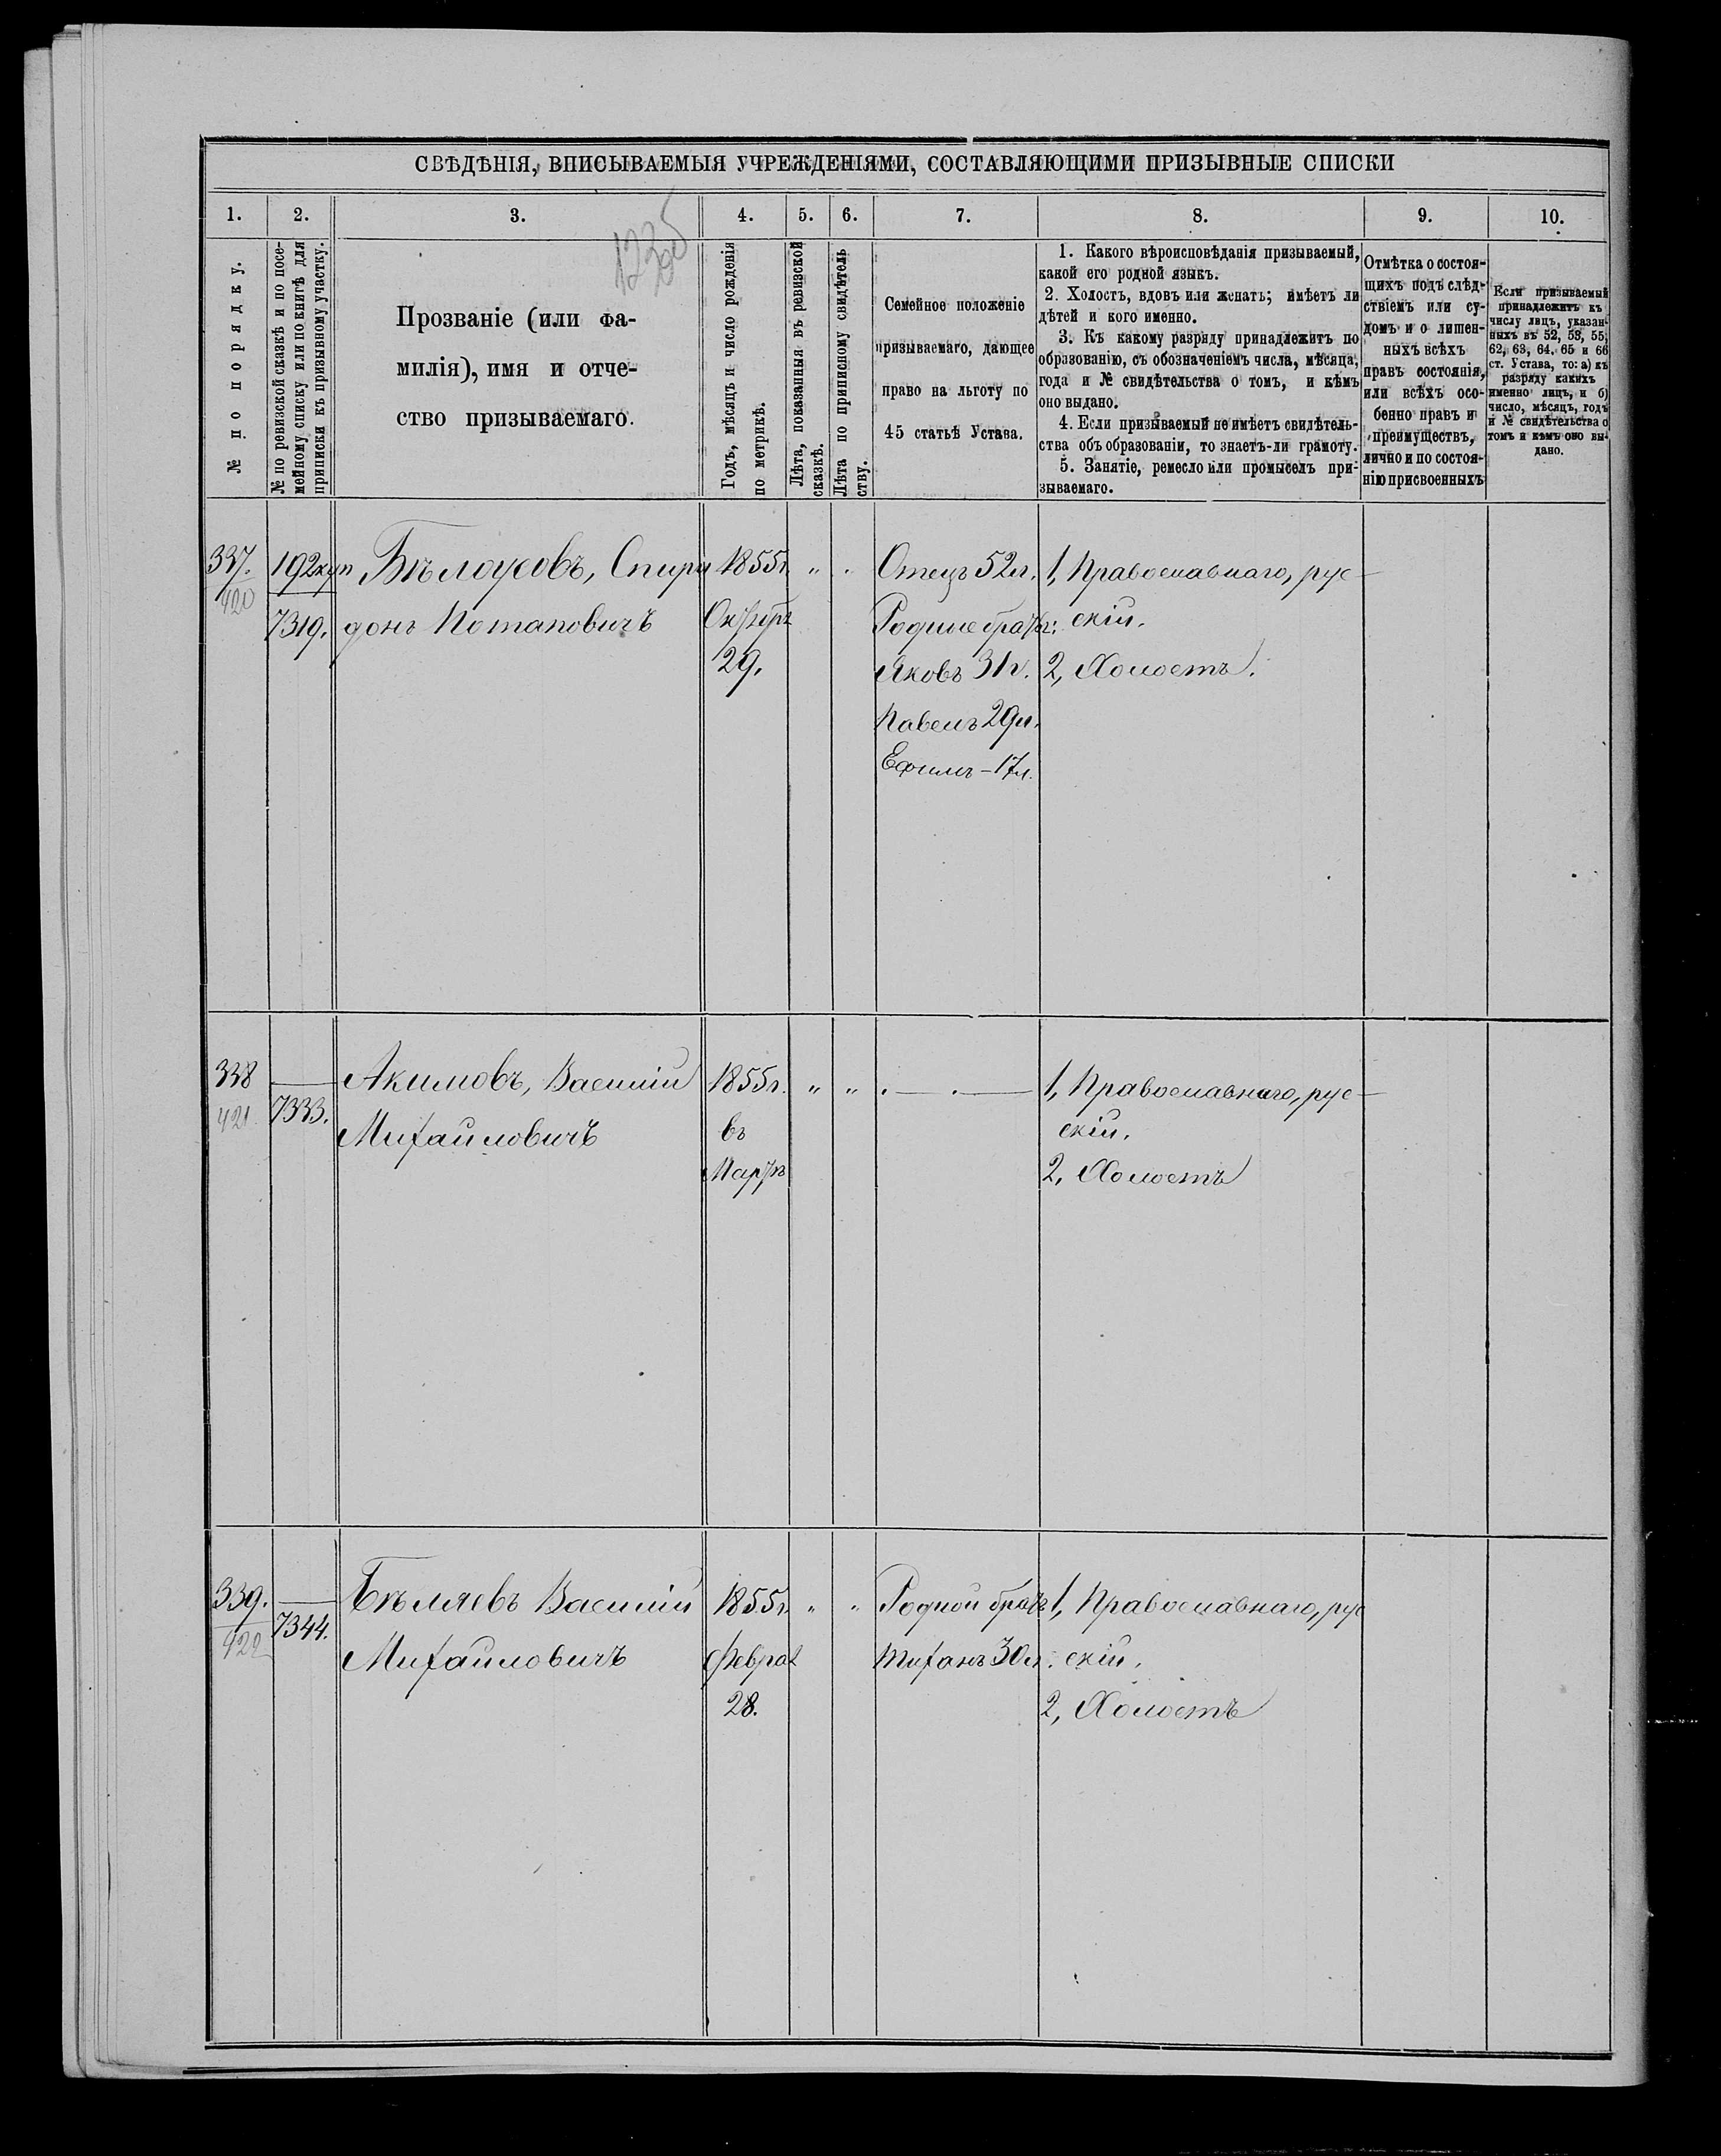 СВѢДѢНІЯ, ВПИСЫВАЕМЫЯ УЧРЕЖДЕНІЯМИ, СОСТАВЛЯЮЩИМИ ПРИЗЫВНЫЕ СПИСКИ
1. 2. 3. 4. 5. 6. 7. 8. 9. 10.
№ по порядку.
№ по ревизской сказкѣ и по посе-
мейному списку или по книгѣ для
приписки къ призывному участку.
Прозваніе (или фа-
милія), имя и отче-
ство призываемаго.
Годъ, мѣсяцъ и число рожденія
по метрикѣ.
Лѣта, показанныя въ ревизской
сказкѣ.
Лѣта по приписному свидѣтель
ству.
Семейное положеніе
призываемаго, дающее
право на льготу по
45 статьѣ Устава.
1. Какого вѣроисповѣданія призываемый,
какой его родной языкъ.
2. Холостъ, вдовъ или женатъ; имѣетъ ли
дѣтей и кого именно.
3. Къ какому разряду принадлежитъ по
образованію, съ обозначеніемъ числа, мѣсяца,
года и № свидѣтельства о томъ, и кѣмъ
оно выдано.
4. Если призываемый не имѣетъ свидѣтель-
ства объ образованіи, то знаетъ-ли грамоту.
5. Занятіе, ремесло или промыселъ при-
зываемаго.
Отмѣтка о состоя-
щихъ подъ слѣд-
ствіемъ или су-
домъ и о лишен-
ныхъ всѣхъ
правъ состоянія,
или всѣхъ осо-
бенно правъ и
преимуществъ,
лично и по состоя-
нію присвоенныхъ
Если призываемый
принадлежитъ къ
числу лицъ, указан-
ныхъ въ 52, 53, 55,
62, 63, 64, 65 и 66
ст. Устава, то: а) къ
разряду какихъ
именно лицъ, и б)
число, мѣсяцъ, годъ
и № свидѣтельства о
томъ и кѣмъ оно вы-
дано.
337. 192 куп Бѣлоусовъ, Спири 1855г. „ „ Отецъ 52л. 1, Православнаго, рус-
420 7319. донъ Потаповичъ Октября Родные братья: скій.
29. Яковъ 31г. 2, Холостъ.
Павелъ 29л.
Ефимъ – 17л.
338 — Акимовъ, Василій 1855г. „ „ — 1, Православнаго, рус-
421 7333. Михайловичъ въ скій.
Мартѣ 2, Холостъ
339. — Бѣляевъ Василій 1855г. „ „ Родной братъ 1, Православнаго, рус
422 7344. Михайловичъ Феврал Тихонъ 30л. скій.
28. 2, Холостъ